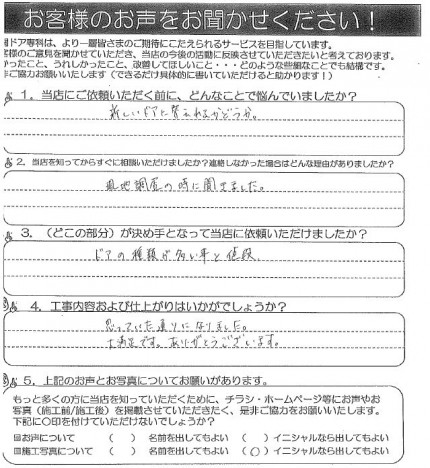 お客様のお声をお聞かせください!
ドア専科は、より一層皆さまのご期待にこたえられるサービスを目指しています。
客様のご意見を聞かせていただき、当店の今後の活動に反映させていただきたいと考えております。
かったこと、うれしかったこと、改善してほしいこと・・・どのような些細なことでも結構です。
非ご協力お願いいたします(できるだけ具体的に書いていただけると助かります!)
1.当店にご依頼いただく前に、どんなことで悩んでいましたか?
新しいドアに替えれるかどうか。
2.当店を知ってからすぐに相談いただけましたか?連絡しなかった場合はどんな理由がありましたか?
現地調査の時に聞きました。
3.(どこの部分)が決め手となって当店に依頼いただけましたか?
ドアの種類が多い事と値段
4.工事内容および仕上がりはいかがでしょうか?
思っていた通りになりました。
大満足です。ありがとうございます。
5.上記のお声とお写真についてお願いがあります。
もっと多くの方に当店を知っていただくために、チラシ・ホームページ等にお声やお
写真(施工前/施工後)を掲載させていただきたく、是非ご協力をお願いいたします。
下記に〇印を付けていただけないでしょうか?
■お声について ( ) 名前を出してもよい ( ) イニシャルなら出してもよい
■施工写真について ( ) 名前を出してもよい (〇) イニシャルなら出してもよい